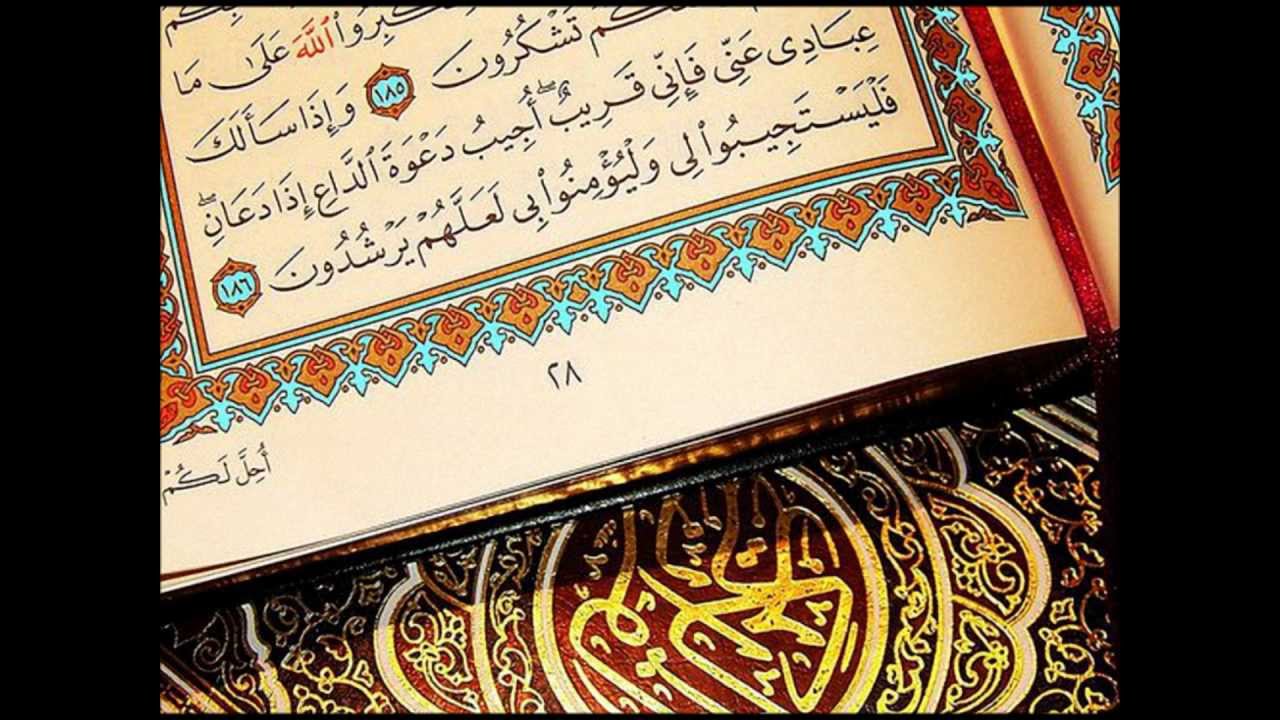 تَشْكُرُونَ ١٨٥ وَإِذَا سَأَلَكَ
وَلِتُكَبِّرُوا۟ ٱللَّهَ عَلَىٰ مَا
عِبَادِى عَنِّى فَإِنِّى قَرِيبٌ ۖ أُجِيبُ دَعْوَةَ ٱلدَّاعِ إِذَا دَعَانِ ۖ
فَلْيَسْتَجِيبُوا۟ لِى وَلْيُؤْمِنُوا۟ بِى لَعَلَّهُمْ يَرْشُدُونَ ١٨٦
٢٨
أُحِلَّ لَكُمْ